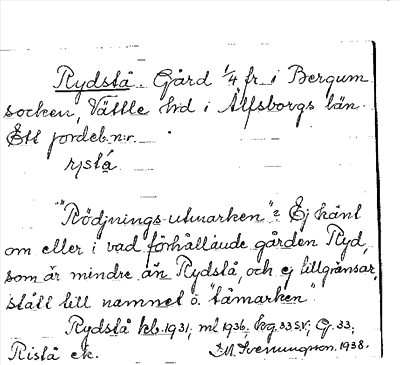 Rydstå. Gård 1/4 fr. i Bergum
socken, Vättle hd i Älfsborgs län.
Ett jordeb.nr.
rystå
"Rödjnings-utmarken"? Ej känt
om eller i vad förhållande gården Ryd,
som är mindre än Rydstå, och ej tillgränsar,
stått till namnet o. "tåmarken"
Rydstå kb. 1931, ml 1936, hg. 33 SV, 33;
Ristå ek. Svenungson. 1938.